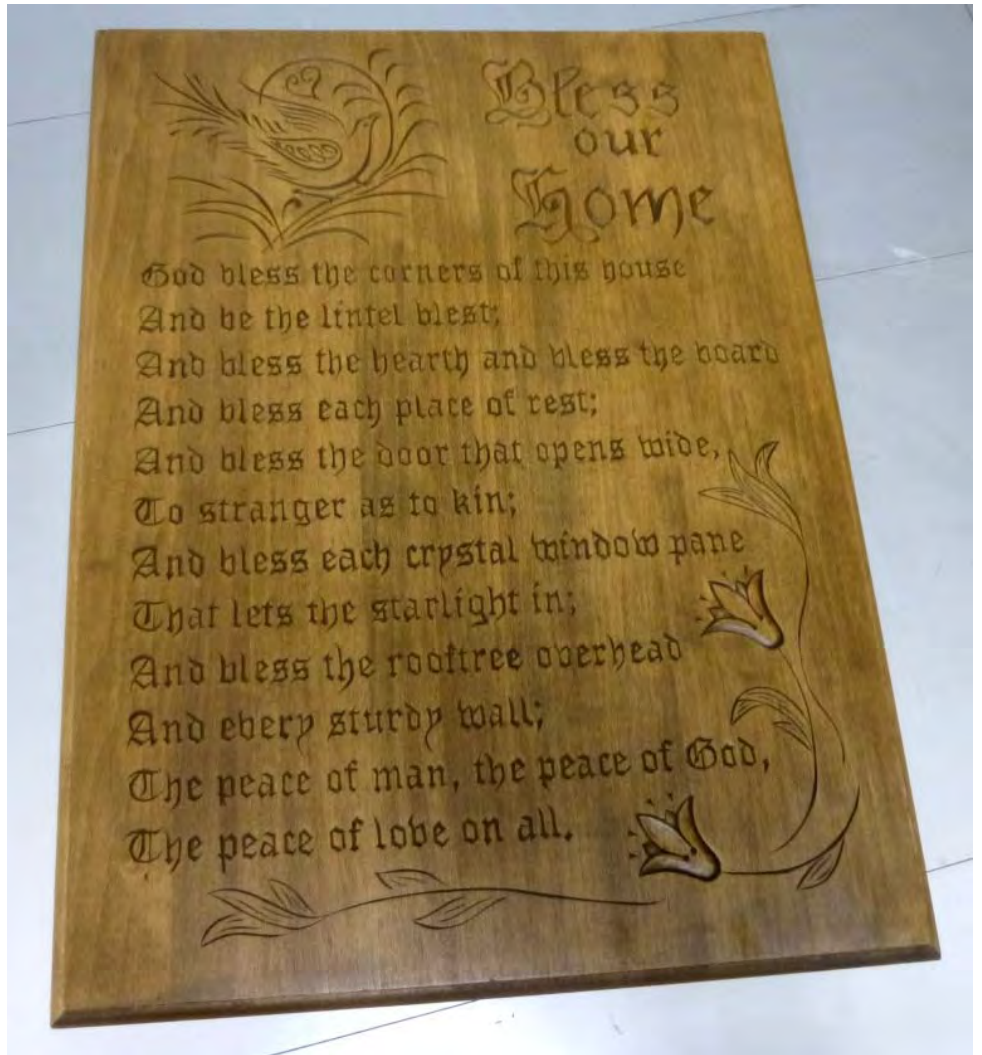 Bless
our
Home
God bless the corners of this house
And be the lintel blest;
And bless the hearth and bless the board
And bless each place of rest;
And bless the door that opens wide,
To stranger as to kin;
And bless each crystal window pane
That lets the starlight in;
And bless the rooftree overhead
And every sturdy wall;
The peace of man, the peace of God,
The peace of love on all.